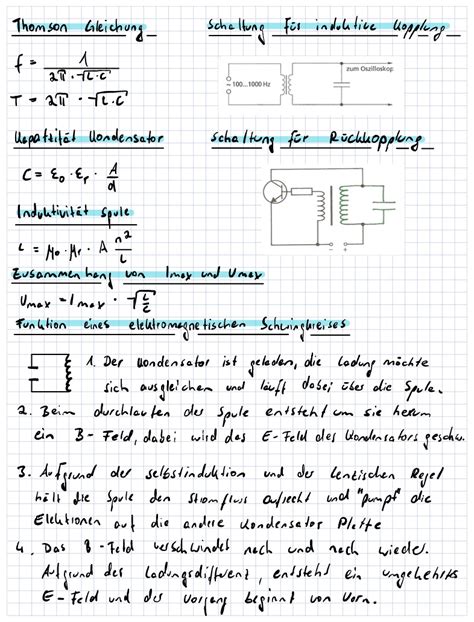 Thomson Gleichung
f = 1 / 2π · √L·C
T = 2π · √L·C
Schaltung für induktive Kopplung
100...1000 Hz
zum Oszilloskop
Kapazität Kondensator
C = ε0 · εr · A/d
Schaltung für Rückkopplung
- +
Induktivität Spule
L = μ0 · μr · A n²/L
Zusammenhang von Imax und Umax
Umax = Imax · √L/C
Funktion eines elektromagnetischen Schwingkreises
1. Der Kondensator ist geladen, die Ladung möchte
sich ausgleichen und läuft dabei über die Spule.
2. Beim durchlaufen der Spule entsteht um sie herum
ein B-Feld, dabei wird das E-Feld des Kondensators geschw.
3. Aufgrund der selbstinduktion und der lenzischen Regel
hält die Spule den Stomfluss aufrecht und "pumpt" die
Elektronen auf die andere Kondensator Platte
4. Das B-Feld verschwindet nach und nach wieder.
Aufgrund des Ladungsdifferenz, entsteht ein umgekehrtes
E-Feld und der Vorgang beginnt von Vorn.